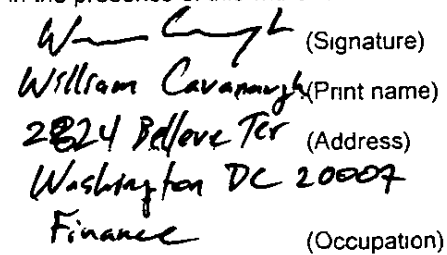 in the presence of
(Signature)
William Cavanaugh (Print name)
2824 Belleve Ter (Address)
Washington DC 20007
Finance (Occupation)